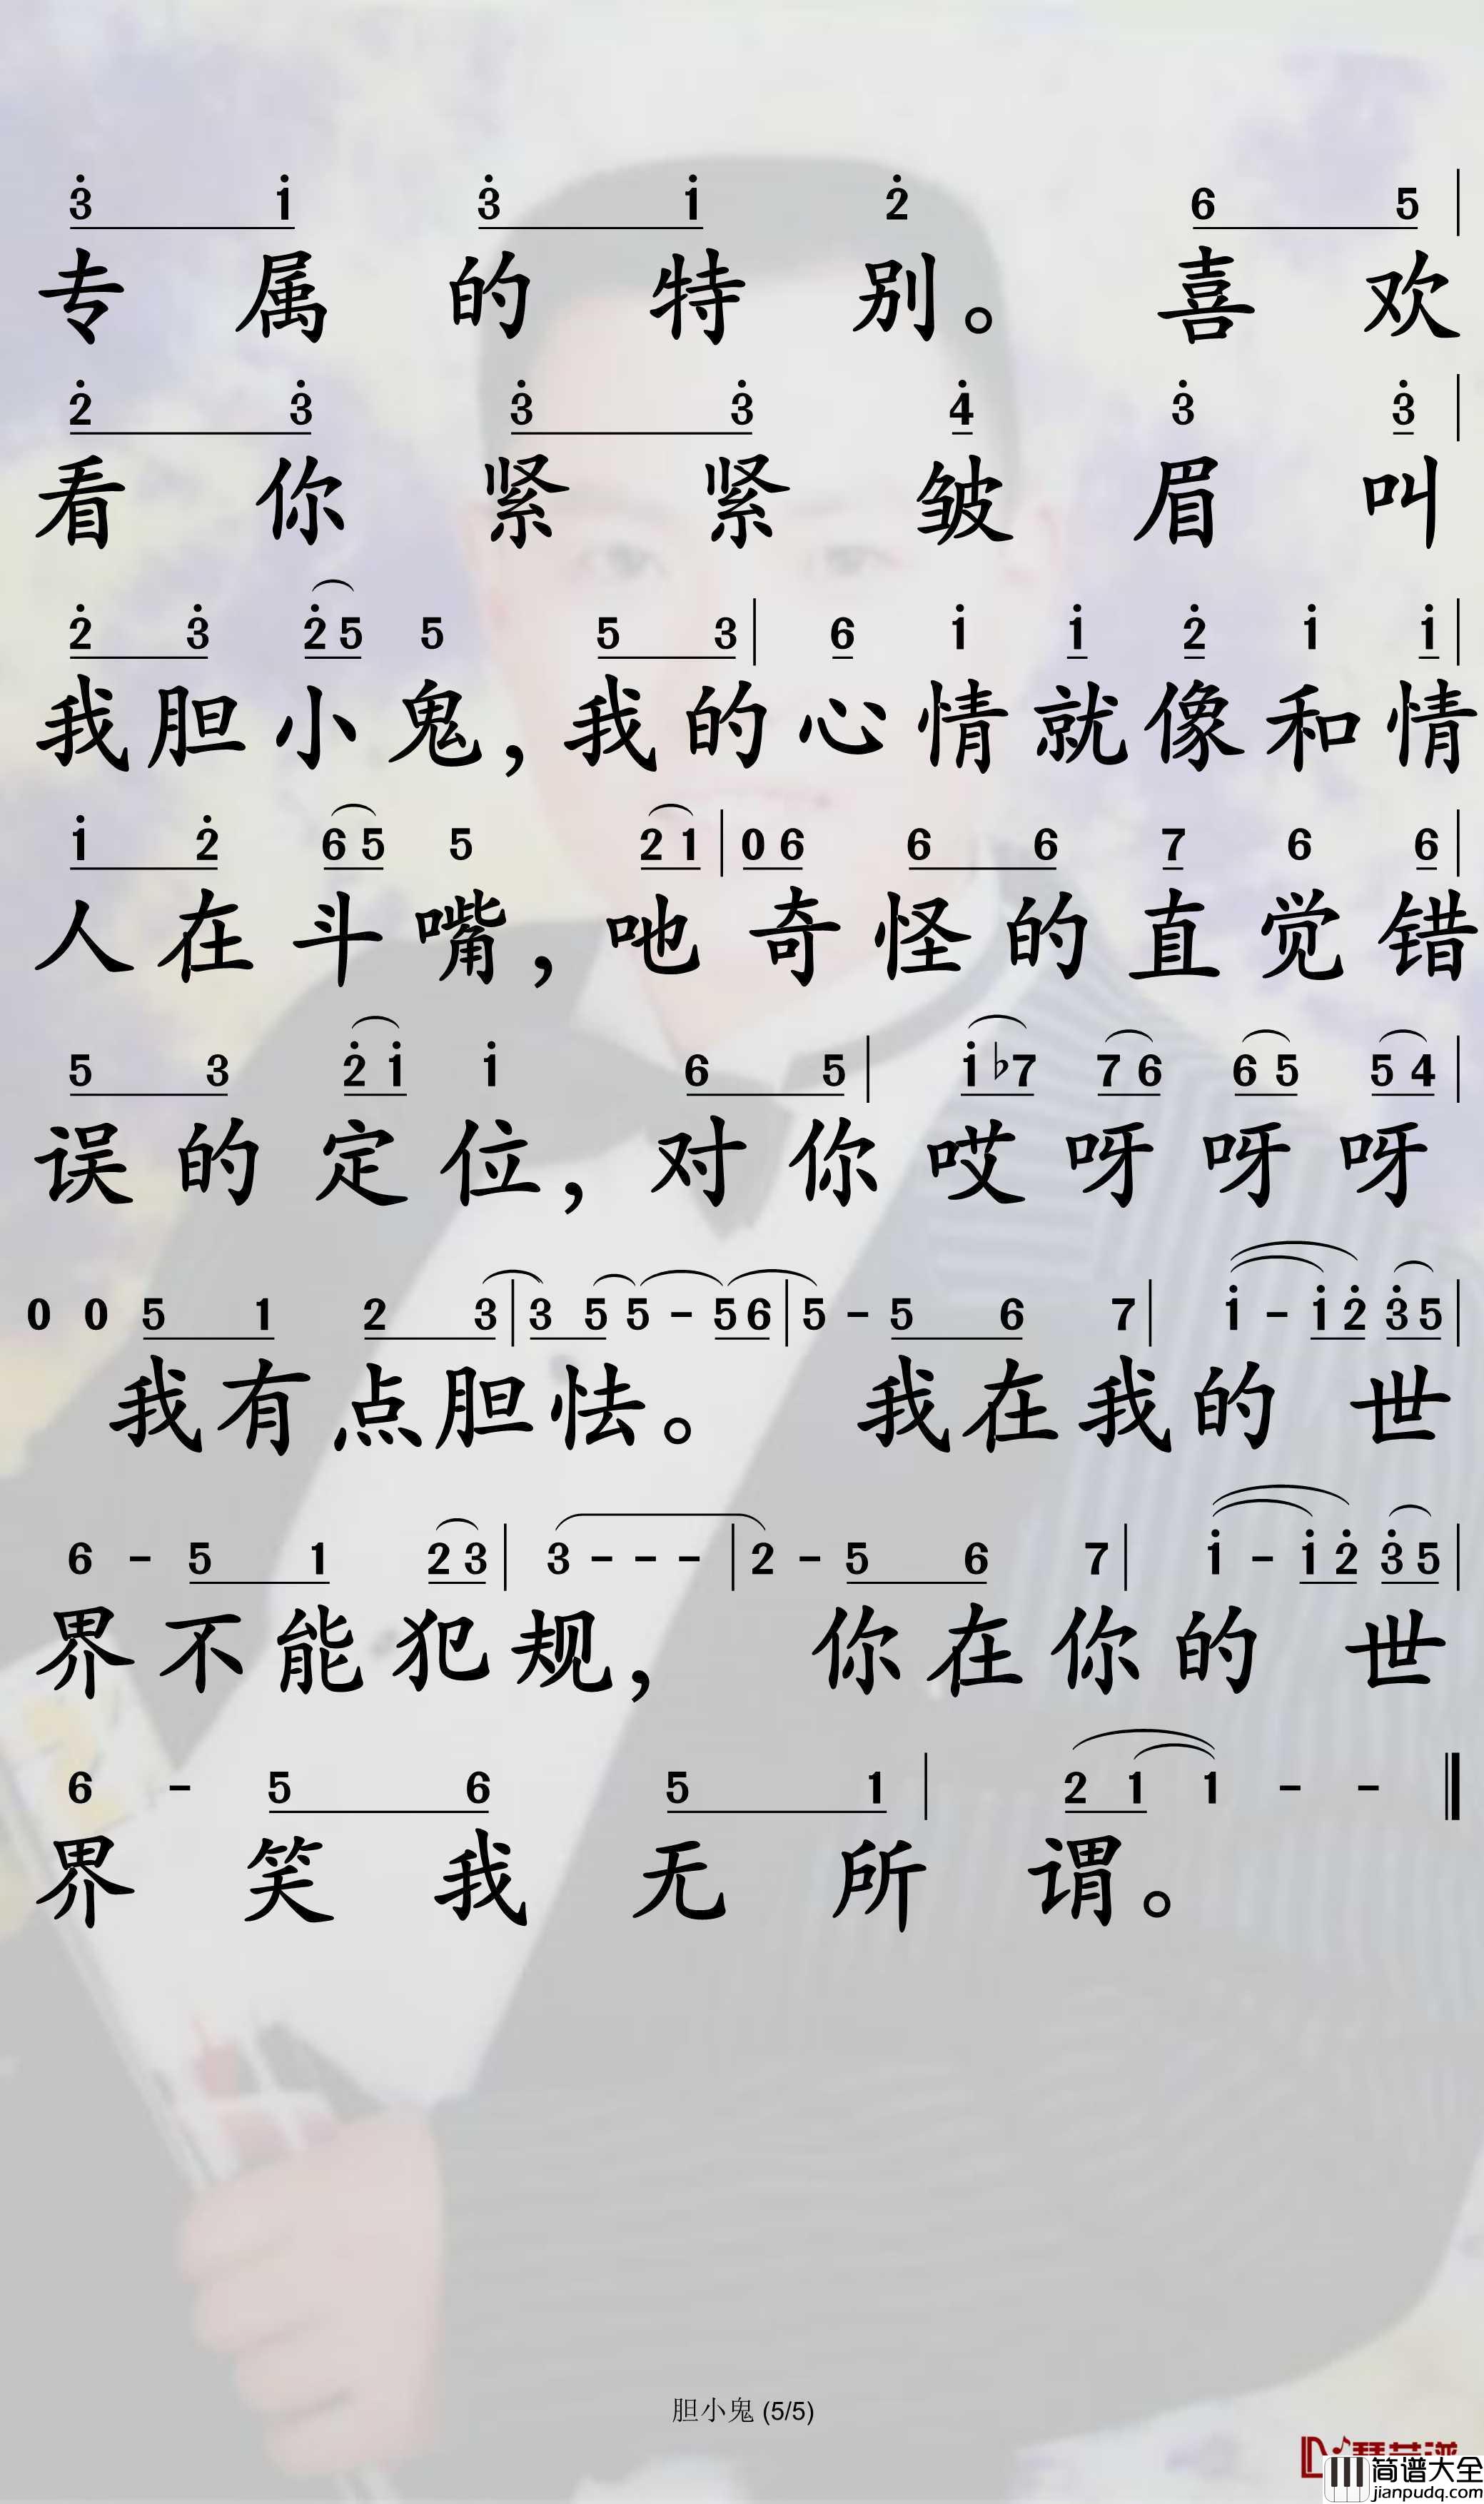 3̇ 1̇ 3̇ 1̇ 2̇ 6 5 |
专属的特别。喜欢
2̇ 3̇ 3̇ 3̇ 4̇ 3̇ 3̇ |
看你紧紧皱眉叫
2̇ 3̇ 2̇ 5 5 5 3 | 6 1̇ 1̇ 2̇ 1̇ 1̇ |
我胆小鬼，我的心情就像和情
1̇ 2̇ 6 5 5 2 1 | 0 6 6 6 7 6 6 |
人在斗嘴，吔奇怪的直觉错
5 3 2̇ 1̇ 1̇ 6 5 | 1̇ ♭7 7 6 6 5 5 4 |
误的定位，对你哎呀呀呀
0 0 5 1 2 3 | 3 5 5 - 5 6 | 5 - 5 6 7 | 1̇ - 1̇ 2̇ 3̇ 5 |
我有点胆怯。 我在我的 世
6 - 5 1 2 3 | 3 - - - | 2 - 5 6 7 | 1̇ - 1̇ 2̇ 3̇ 5 |
界不能犯规， 你在你的 世
6 - 5 6 5 1 | 2 1 1 - - ‖
界笑我无所谓。
胆小鬼 (5/5)
简谱大全
jianpudq.com